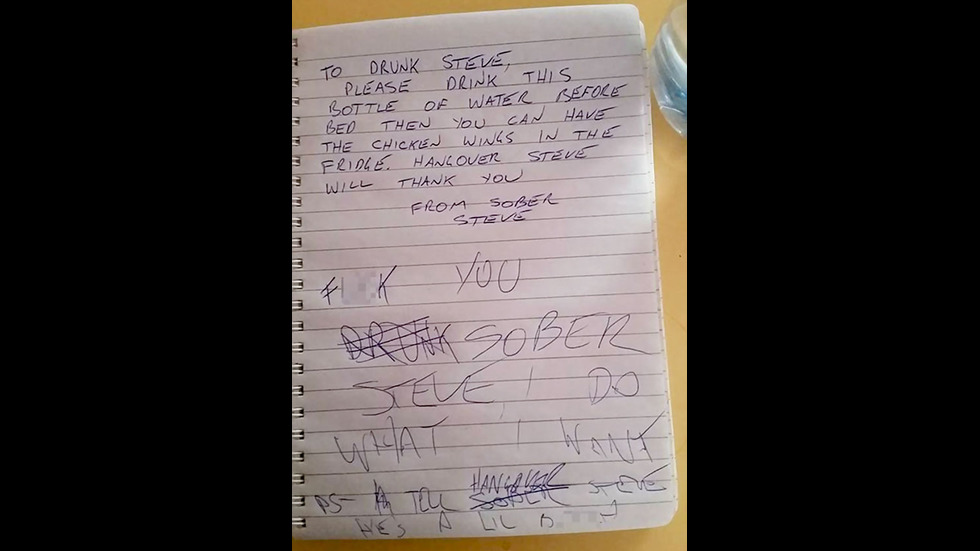 TO DRUNK STEVE,
PLEASE DRINK THIS
BOTTLE OF WATER BEFORE
BED THEN YOU CAN HAVE
THE CHICKEN WINGS IN THE
FRIDGE. HANGOVER STEVE
WILL THANK YOU
FROM SOBER
STEVE
YOU
DRUNK SOBER
STEVE, I DO
WHAT I WANT
PS- TELL HANGOVER SOBER STEVE
HES A LIL